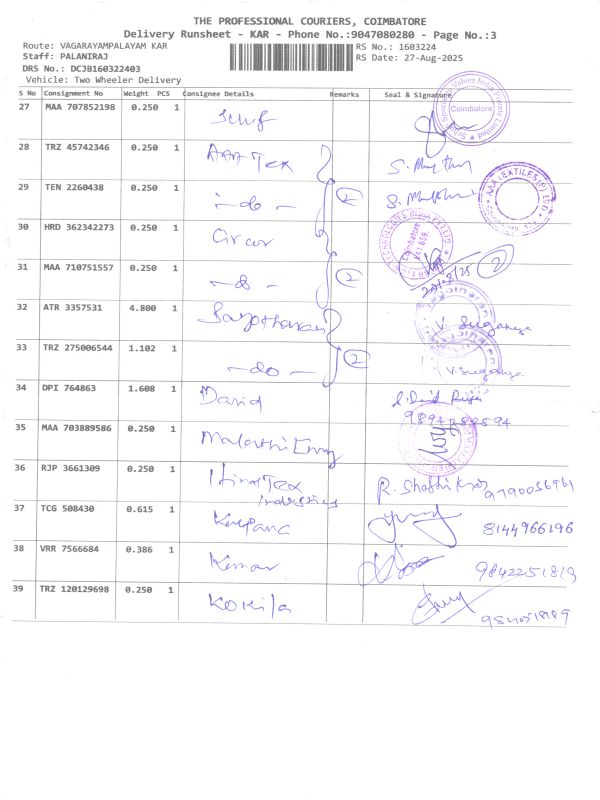 THE PROFESSIONAL COURIERS, COIMBATORE
Delivery Runsheet - KAR - Phone No.:9047080280 - Page No.:3
Route: VAGARAYAMPALAYAM KAR
RS No.: 1603224
Staff: PALANIRAJ
RS Date: 27-Aug-2025
DRS No.: DCJB160322403
Vehicle: Two Wheeler Delivery
S No Consignment No Weight PCS Consignee Details Remarks Seal & Signature
27 MAA 707852198 0.250 1
Coimbatore
28 TRZ 45742346 0.250 1 AAA Tex
29 TEN 2260438 0.250 1 -do- 2
AAA TEXTILES (P) LTD
30 HRD 362342273 0.250 1 Circor
Coimbatore
31 MAA 710751557 0.250 1 -do- 2 2
32 ATR 3357531 4.800 1 V. Suganya
33 TRZ 275006544 1.102 1 -do- 2 V. Suganya
34 DPI 764863 1.608 1 David
35 MAA 703889586 0.250 1
36 RJP 3661309 0.250 1
37 TCG 508430 0.615 1 Kalpana 8144966196
38 VRR 7566684 0.386 1 Kumar
39 TRZ 120129698 0.250 1 Kokila